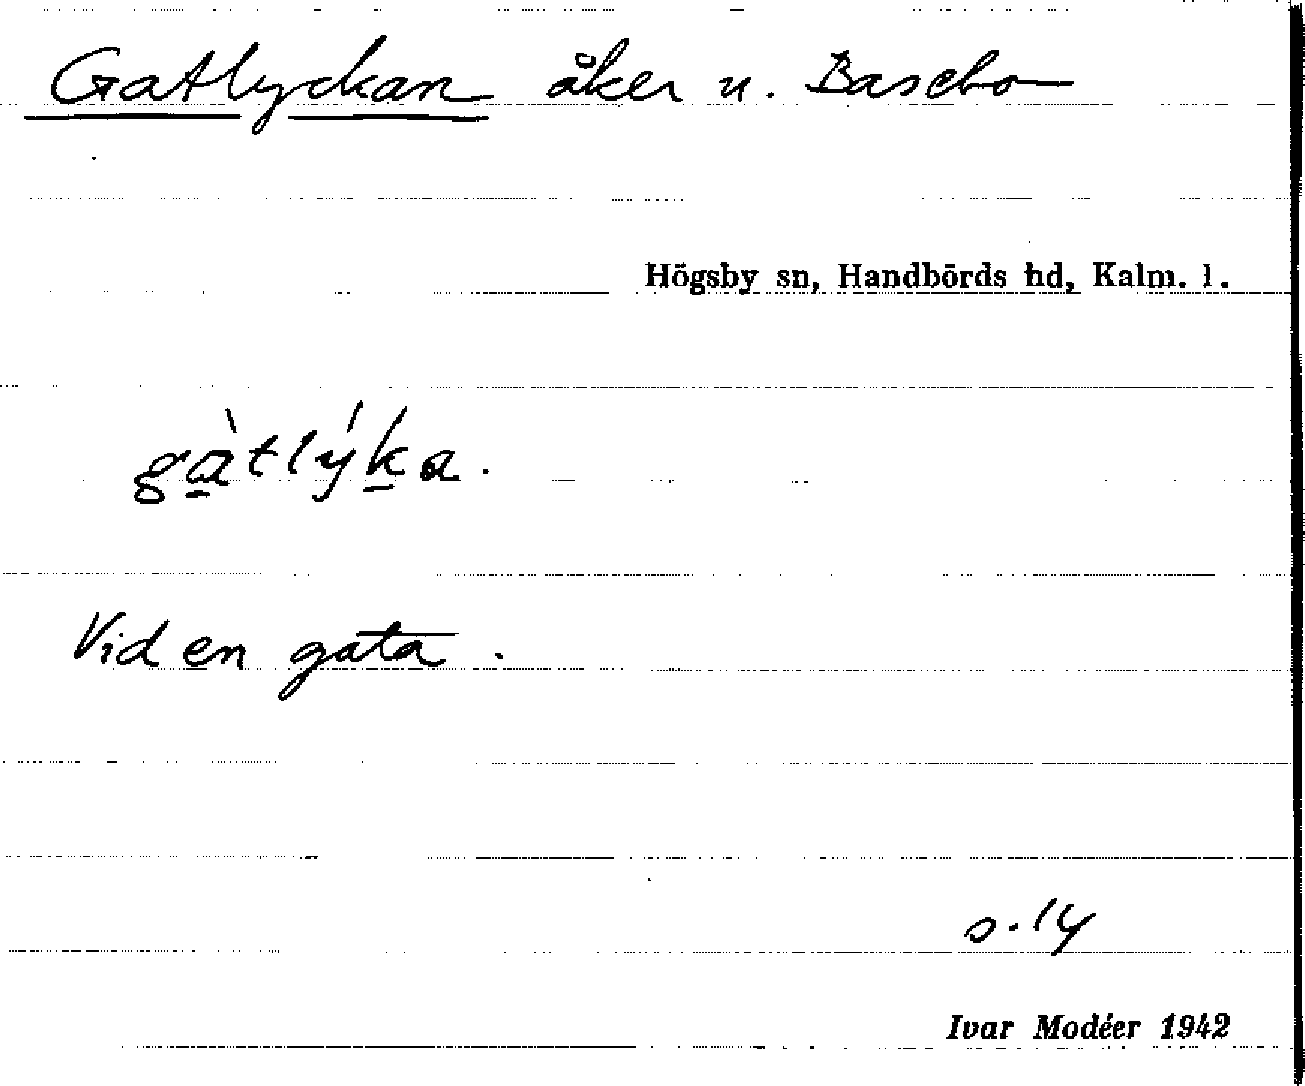 Gatlyckan åker u. Basebo
Högsby sn, Handbörds hd, Kalm. l.
gà̱tlýḵa.
Vid en gata.
s. 14
Ivar Modéer 1942